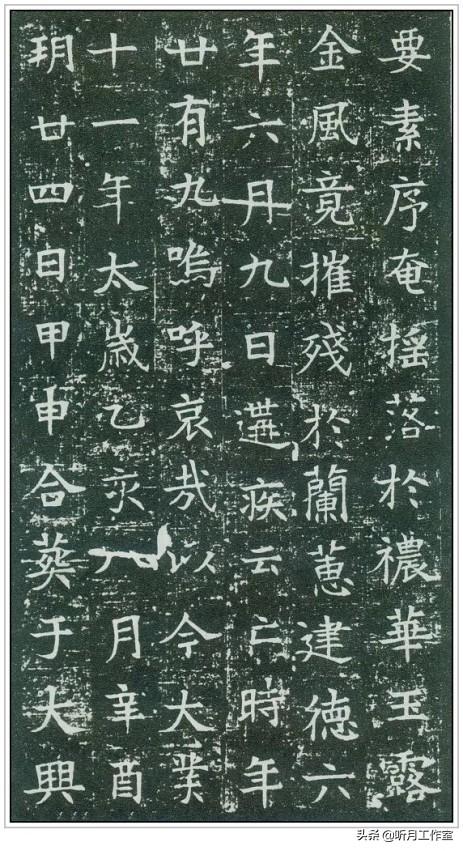 要素序奄搖落於禯華玉露
金風竟摧殘於蘭蕙建德六
年六月九日遘疾云亡時年
廿有九嗚呼哀哉以今大業
十一年太歲乙亥八月辛酉
朔廿四日甲申合葬于大興
头条 @听月工作室